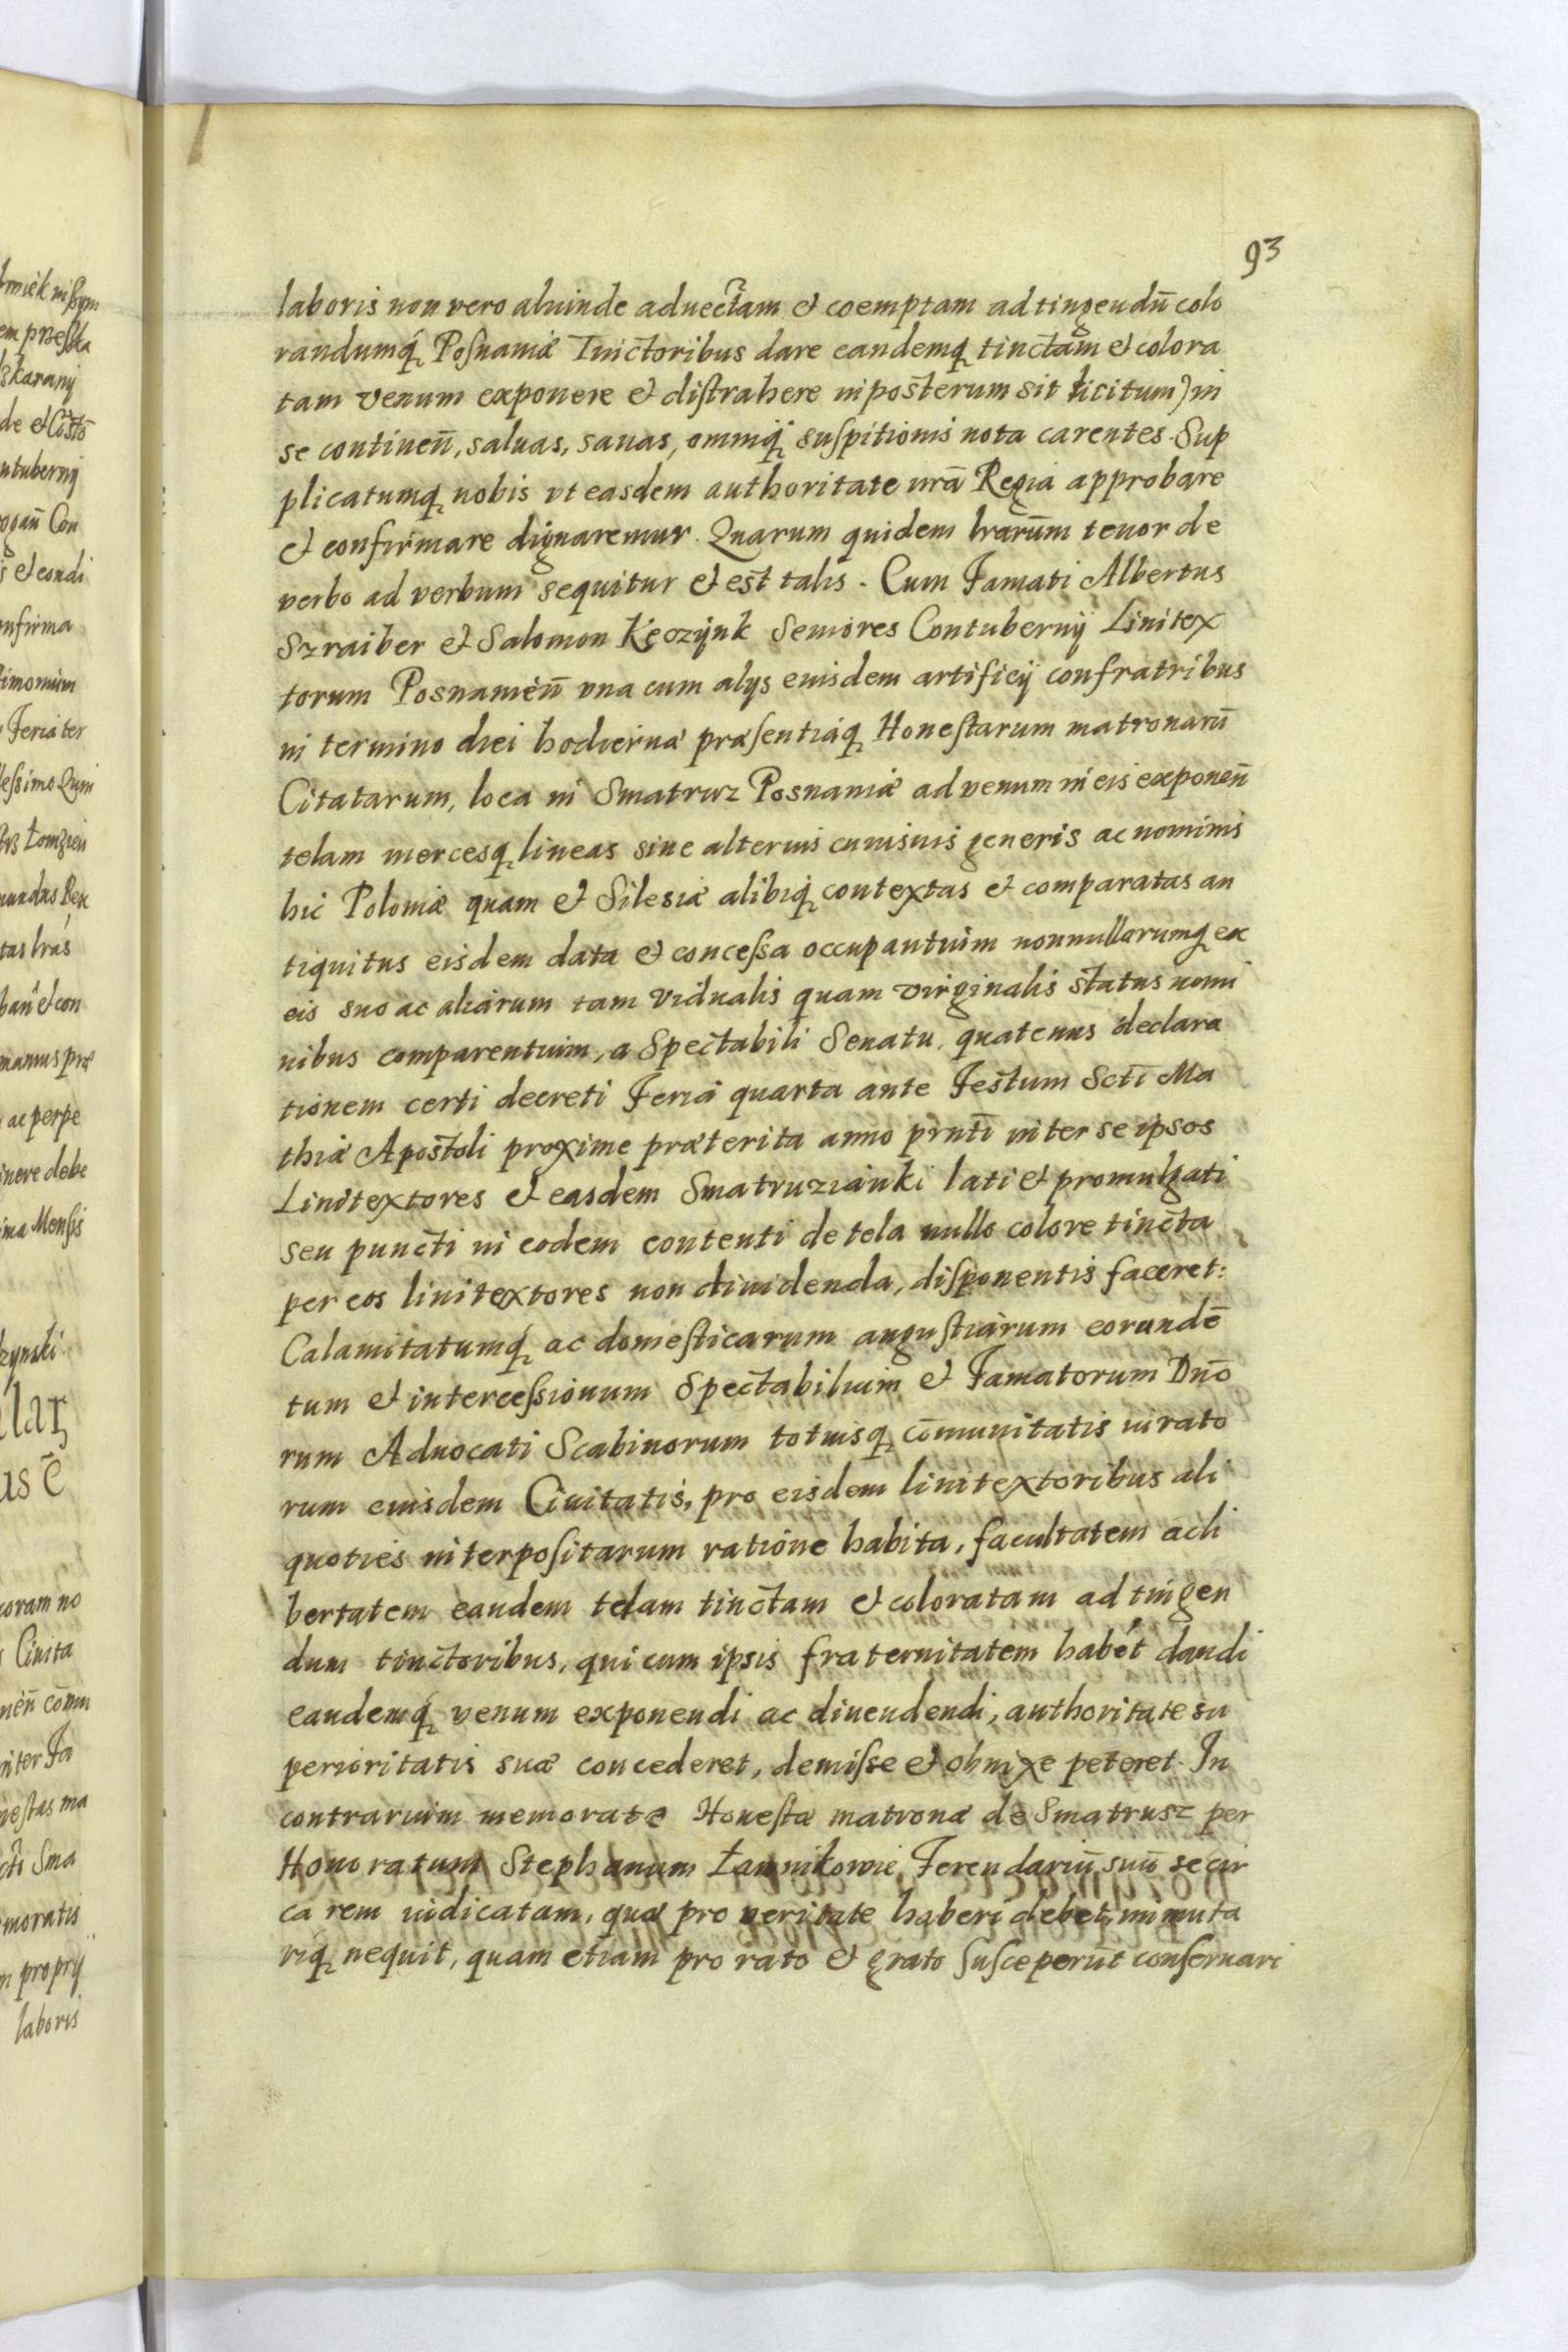 93
laboris non vero aliunde aduectam et coemptam ad tingendū colo
randumq́ Posnaniæ Tinctoribus dare eandemq tinctam et colora
tam venum exponere et distrahere inposterum sit licitum) in
se continen̄, saluas, sanas, omniq́ suspitionis nota carentes. Sup
plicatumq nobis vt easdem authoritate nrā Regia approbare
et confirmare dignaremur. Quarum quidem lrarūm tenor de
verbo ad verbum sequitur et est talis. Cum Famati Albertus
Szraiber et Salomon Kęczÿnk Seniores Contubernÿ Linitex
torum Posnanien̄ vna cum alÿs eiusdem artificÿ confratribus
in termino diei hodiernæ præsentiáq Honestarum matronarū
Citatarum, loca in Smatruz Posnaniæ ad venum in eis exponen̄
telam mercesq lineas siue alterius cuiusuis generis ac nominis
hic Poloniæ quam et Silesiæ alibiq́ contextas et comparatas an
tiquitus eisdem data et concessa occupantium nonnullarumq ex
eis suo ac aliarum tam vidualis quam virginalis status nomi
nibus comparentium, a Spectabili Senatu, quatenus declara
tionem certi decreti Feria quarta ante Festum Scti Ma
thiæ Apostoli proxime præterita anno prnti inter se ipsos
Linitextores et easdem Smatruzianki lati et promulgati
seu puncti in eodem contenti de tela nullo colore tincta
per eos linitextores non diuidenda, disponentis faceret:
Calamitatumq́ ac domesticarum angustiarum eorundē
tum et intercessionum Spectabilium et Famatorum Dn̄o
rum Aduocati Scabinorum totiusq cōmunitatis iurato
rum eiusdem Ciuitatis, pro eisdem linitextoribus ali
quoties interpositarum ratione habita, facultatem ac li
bertatem eandem telam tinctam et coloratam ad tingen
dum tinctoribus, qui cum ipsis fraternitatem habét dandi
eandemq́ venum exponendi ac diuendendi, authoritate su
perioritatis suæ concederet, demisse et obnixe peteret. In
contrarium memoratæ Honestæ matronæ de Smatrusz per
Honoratum Stephanum Ławnikowic Ferendariū suū se cir
ca rem iudicatam, quæ pro veritate haberi debet, immuta
riq nequit, quam etiam pro rato et grato susceperūt conseruari